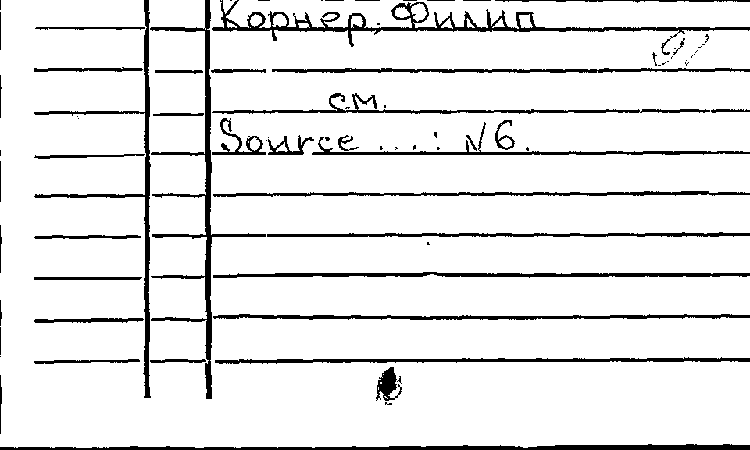 Корнер, Филип
см.
Source ...: N6.